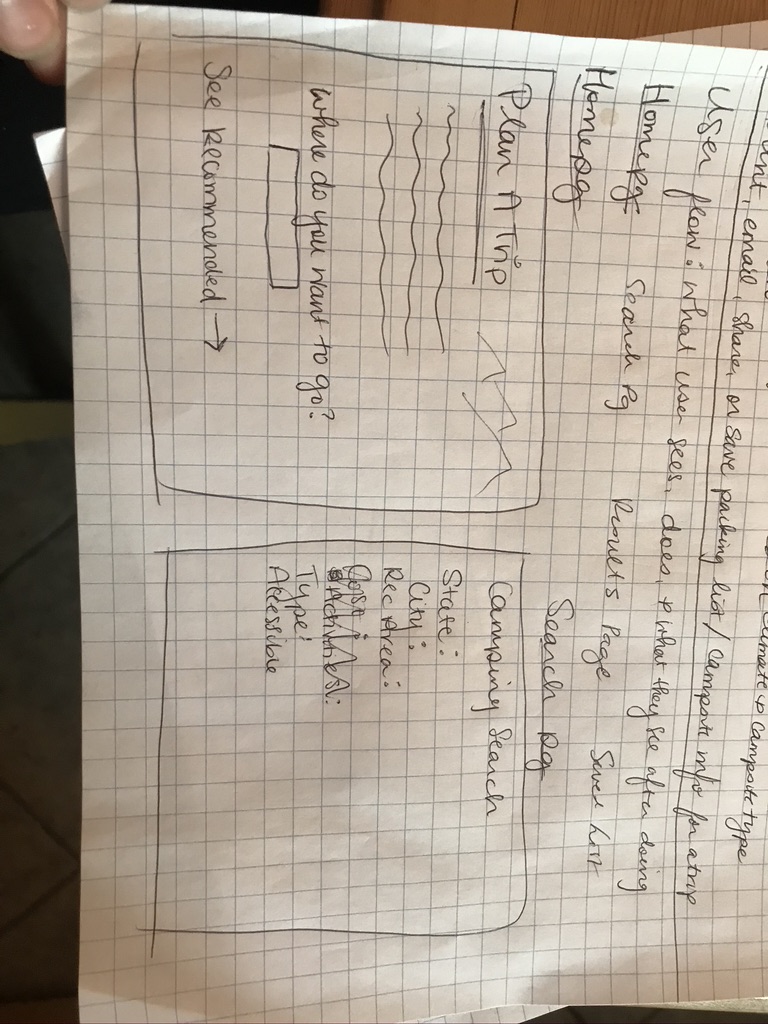 email, share, or save packing list / campsite info for a trip
climate & campsite type
User flow: what user sees, does, & what they see after doing
Homepg Search Pg Results Page Saved List
Homepg
Plan A Trip
Where do you want to go?
See Recommended →
Search pg
Camping Search
State:
City:
Rec Area:
Cost:
Activities:
Type:
Accessible